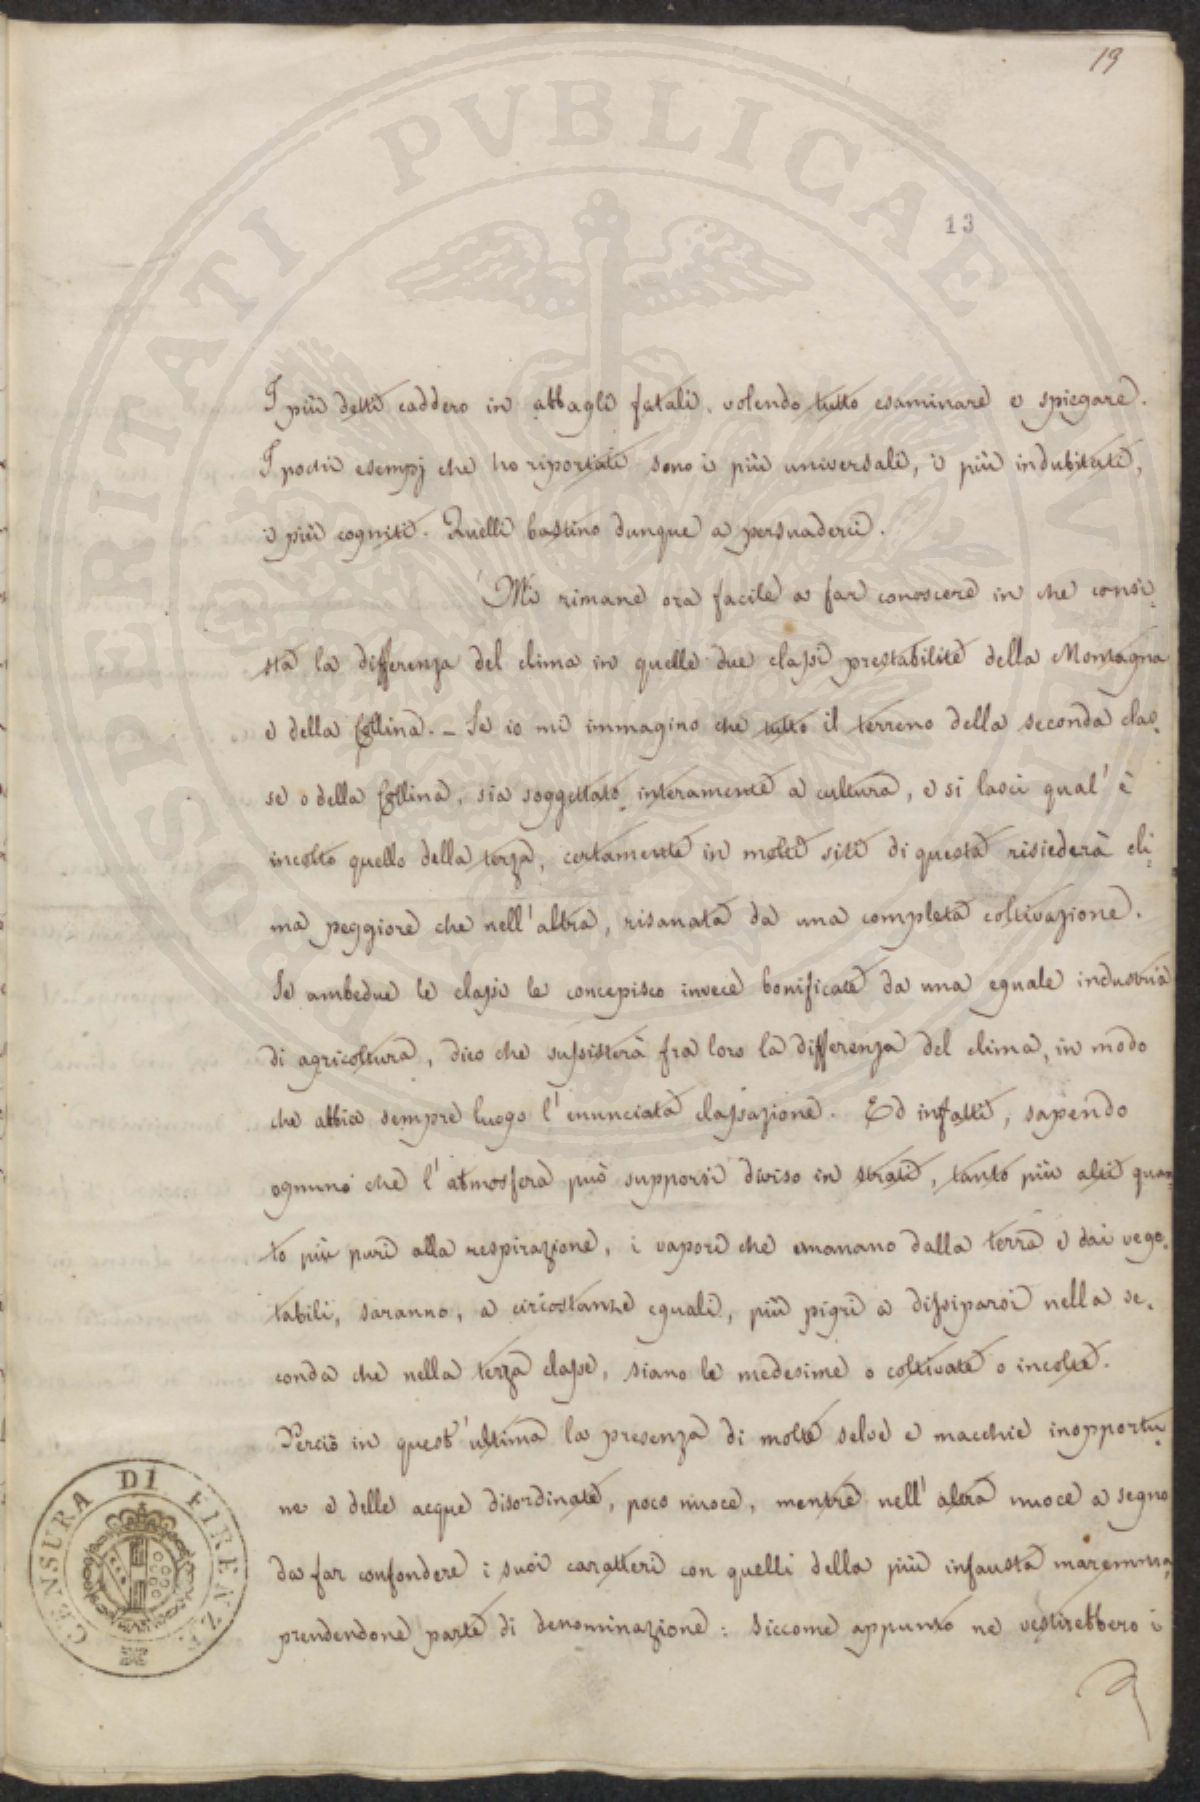 19
13
I più detti caddero in abbagli fatali, volendo tutto esaminare e spiegare.
I pochi esempj che ho riportati sono i più universali, i più indubitati,
i più cogniti. Quelli bastino dunque a persuaderci.
Mi rimane ora facile a far conoscere in che consi-
sta la differenza del clima in quelle due classi prestabilite della Montagna
e della Collina. _ Se io mi immagino che tutto il terreno della seconda clas-
se o della Collina, sia soggettato interamente a cultura, e si lasci qual' è
incolto quello della terza, certamente in molti siti di questa risiederà cli-
ma peggiore che nell'altra, risanata da una completa coltivazione.
Se ambedue le classi le concepisco invece bonificate da una eguale industria
di agricoltura, dico che sussisterà fra loro la differenza del clima, in modo
che abbia sempre luogo l'enunciata classazione. Ed infatti, sapendo
ognuno che l'atmosfera può supporsi diviso in strati, tanto più alti quan-
to più puri alla respirazione, i vapori che emanano dalla terra e dai vege-
tabili, saranno, a circostanze eguali, più pigri a dissiparsi nella se-
conda che nella terza classe, siano le medesime o coltivate o incolte.
Perciò in quest'ultima la presenza di molte selve e macchie inopportu-
ne e delle acque disordinate, poco nuoce, mentre nell'altra nuoce a segno
da far confondere i suoi caratteri con quelli della più infausta maremma,
prendendone parte di denominazione: siccome appunto ne vestirebbero i
CENSURA DI FIRENZE
PROSPERITATI PVBLICAE AVGENDAE